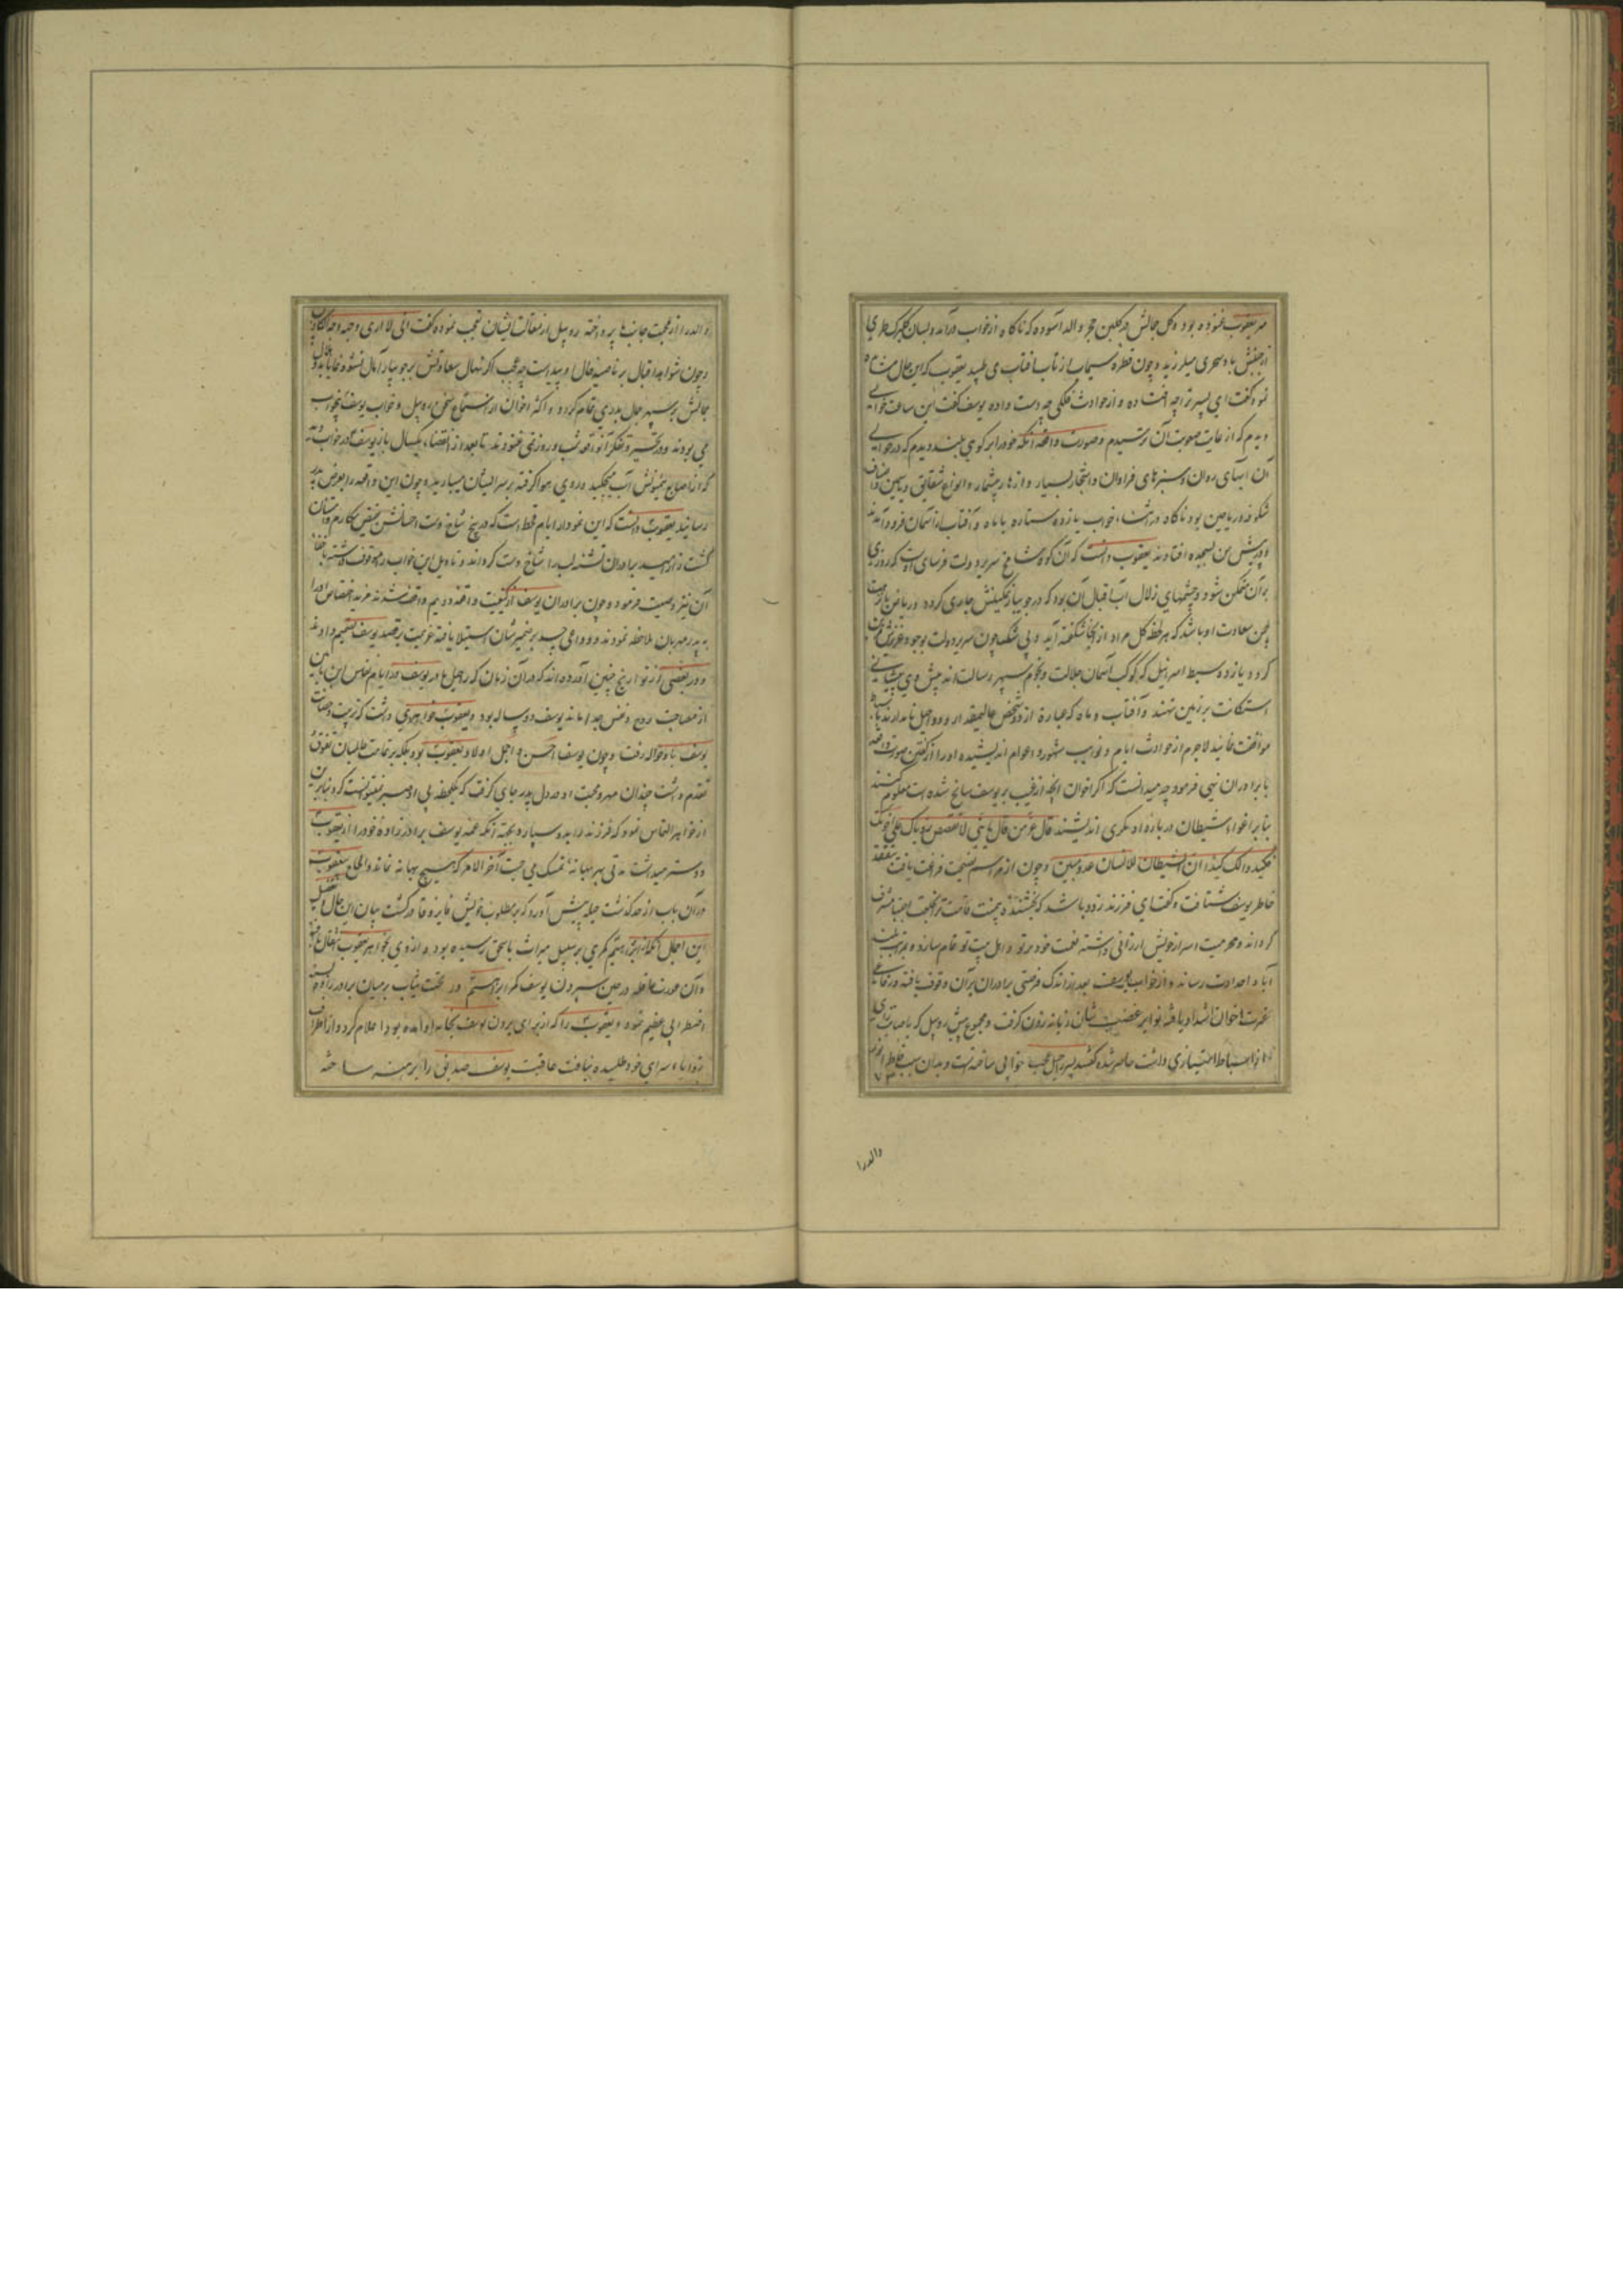 مهر یعقوب غنوده بود و گل جمالش در گلبن حجر والد آسوده که ناگاه از خواب درآمد و بسان گلبرگ طری
از جنبش باد سحری میلرزید و چون قطره سیماب از تاب آفتاب می طپید یعقوب که این حال مشاهده
نمود گفت ای پسر ترا چه افتاده و از حوادث فلکی چه دست داده یوسف گفت این ساعت خوابی
دیدم که از غایت صعوبت آن ترسیدم و صورت واقعه آنکه خود را بر کوهی بلند دیدم که در حوالی
آن آبهای روان و سبزهای فراوان و اشجار بسیار و ازهار بیشمار و انواع شقایق و یاسمین و اصناف
شکوفه و ریاحین بود ناگاه در اثناء خواب یازده ستاره با ماه و آفتاب از آسمان فرود آمدند
و در پیش من بسجده افتادند یعقوب دانست که آن کوه شامخ سریر دولت فرسای اوست که روزی
بر آن متمکن شود و چشمهای زلال آب اقبال آن بود که در جویبار تمکینش جاری کرده و ریاحین
چمن سعادت او باشد که هر لحظه گل مراد از آنجا شکفته آید و بی شک چون سریر دولت بوجود عزیزش
گردد یازده سبط اسرائیل که کوکب آسمان جلالت و نجوم سپهر رسالت اند پیش وی پیشانی
استکانت بر زمین نهند و آفتاب و ماه که عبارة از دو شخص عالیمقدار
موافقت نمایند لاجرم از حوادث ایام و نوایب شهور و اعوام اندیشیده او را از گفتن صورت واقعه
با برادران نهی فرمود چه میدانست که اگر اخوان آنچه از غیب بر یوسف سانح شده است معلوم کنند
بنا بر اغواء شیطان درباره او مکری اندیشند قال عز من قائل یا بنی لا تقصص رویاک علی اخوتک
فیکیدوا لک کیدا ان الشیطان للانسان عدو مبین و چون از مراسم نصیحت فراغت یافت بتفقد
خاطر یوسف شتافت و گفت ای فرزند زود باشد که بخشنده بی منت قامت ترا بخلعت اجتبا مشرف
گرداند و محرمیت اسرار خویش ارزانی داشته نعمت خود بر تو و اهل بیت تو تمام سازد و بمرتبه بلند
آبا و اجدادت رساند و از خواب یوسف بعد از اندک فرصتی برادران بر آن وقوف یافته
غیرت اخوان اشتداد یافته نوایر غضب شان زبانه زدن گرفت و مجموع پیش روبیل که باصابت رای
از اسباط امتیازی داشت حاضر شده گفتند پسر راحیل عجب خوابی ساخته است و بدان سبب خاطر
والد را
والد را از محبت جانب ما پرداخته روبیل از مقالت ایشان تعجب نموده گفت انی لا اری وجهه وجه الکاذبین
و چون شواهد اقبال بر ناصیه حال او پیداست چه عجب اگر نهال سعادتش بر جویبار آمال نشو و نما یابد و هلال
جمالش بر سپهر جلال بدری تمام گردد و اکثر اخوان از استماع سخن روبیل و خواب یوسف
می بودند و در تحیر و تفکر آن واقعه شب و روز نمی غنودند تا بعد از انقضاء یکسال باز یوسف در خواب دید
که از اصابع میمونش آب میچکید و روی هوا گرفته بر سر ایشان میبارید و چون این واقعه را بعرض پدر
رسانید یعقوب دانست که این نمودار ایام قحط است که در پنج شاخ دست احسانش مکارم
گشت زار امید برادران تشنه لب را شاخ دست گرداند و تاویل این خواب را موقوف داشته باخفاء
آن نیز وصیت فرمود و چون برادران یوسف از کیفیت واقعه دویم واقف شدند مزید اختصاص او را
به پدر مهربان ملاحظه نمودند و دواعی حسد بر ضمیر شان استیلا یافته عزیمت بر قصد یوسف تصمیم دادند
و در بعضی از تواریخ چنین آورده اند که در آن زمان که راحیل مادر یوسف در ایام نفاس ابن یامین
از مصاحبت روح و نفس جدا ماند یوسف دو ساله بود و یعقوب خواهری داشت که تربیت و حضانت
یوسف باو حواله رفت و چون یوسف احسن و اجمل اولاد یعقوب بود بلکه بر تمامت طالبان تفوق
تقدم داشت چندان مهر و محبت او در دل پدر جای گرفت که یکلحظه بی او بسر نمیتوانست کرد بنابرین
از خواهر التماس نمود که فرزند را بدو سپارد و بجهة آنکه عمه یوسف برادرزاده خود را از یعقوب
دوستر میداشت مدتی بهر بهانه تمسک می جست آخر الامر که هیچ بهانه نماند و الحاح یعقوب
در آن باب از حد گذشت حیله پیش آورد که بر مطلوب خویش فایز و قادر گشت بیان این حال و تفصیل
این اجمال آنکه از ابراهیم کمری بر سبیل میراث باسحق رسیده بود و از وی بخواهر یعقوب انتقال
و آن عورت عاقله در حین سپردن یوسف کمر ابراهیم در تحت ثیاب بر میان برادرزاده بسته
اضطرابی عظیم نمود و یعقوب را که از برای بردن یوسف بخانه او آمده بود اعلام کرد و از اطراف
زوایاء سرای خود طلبیده نیافت عاقبت یوسف صدیق را برهنه ساخته